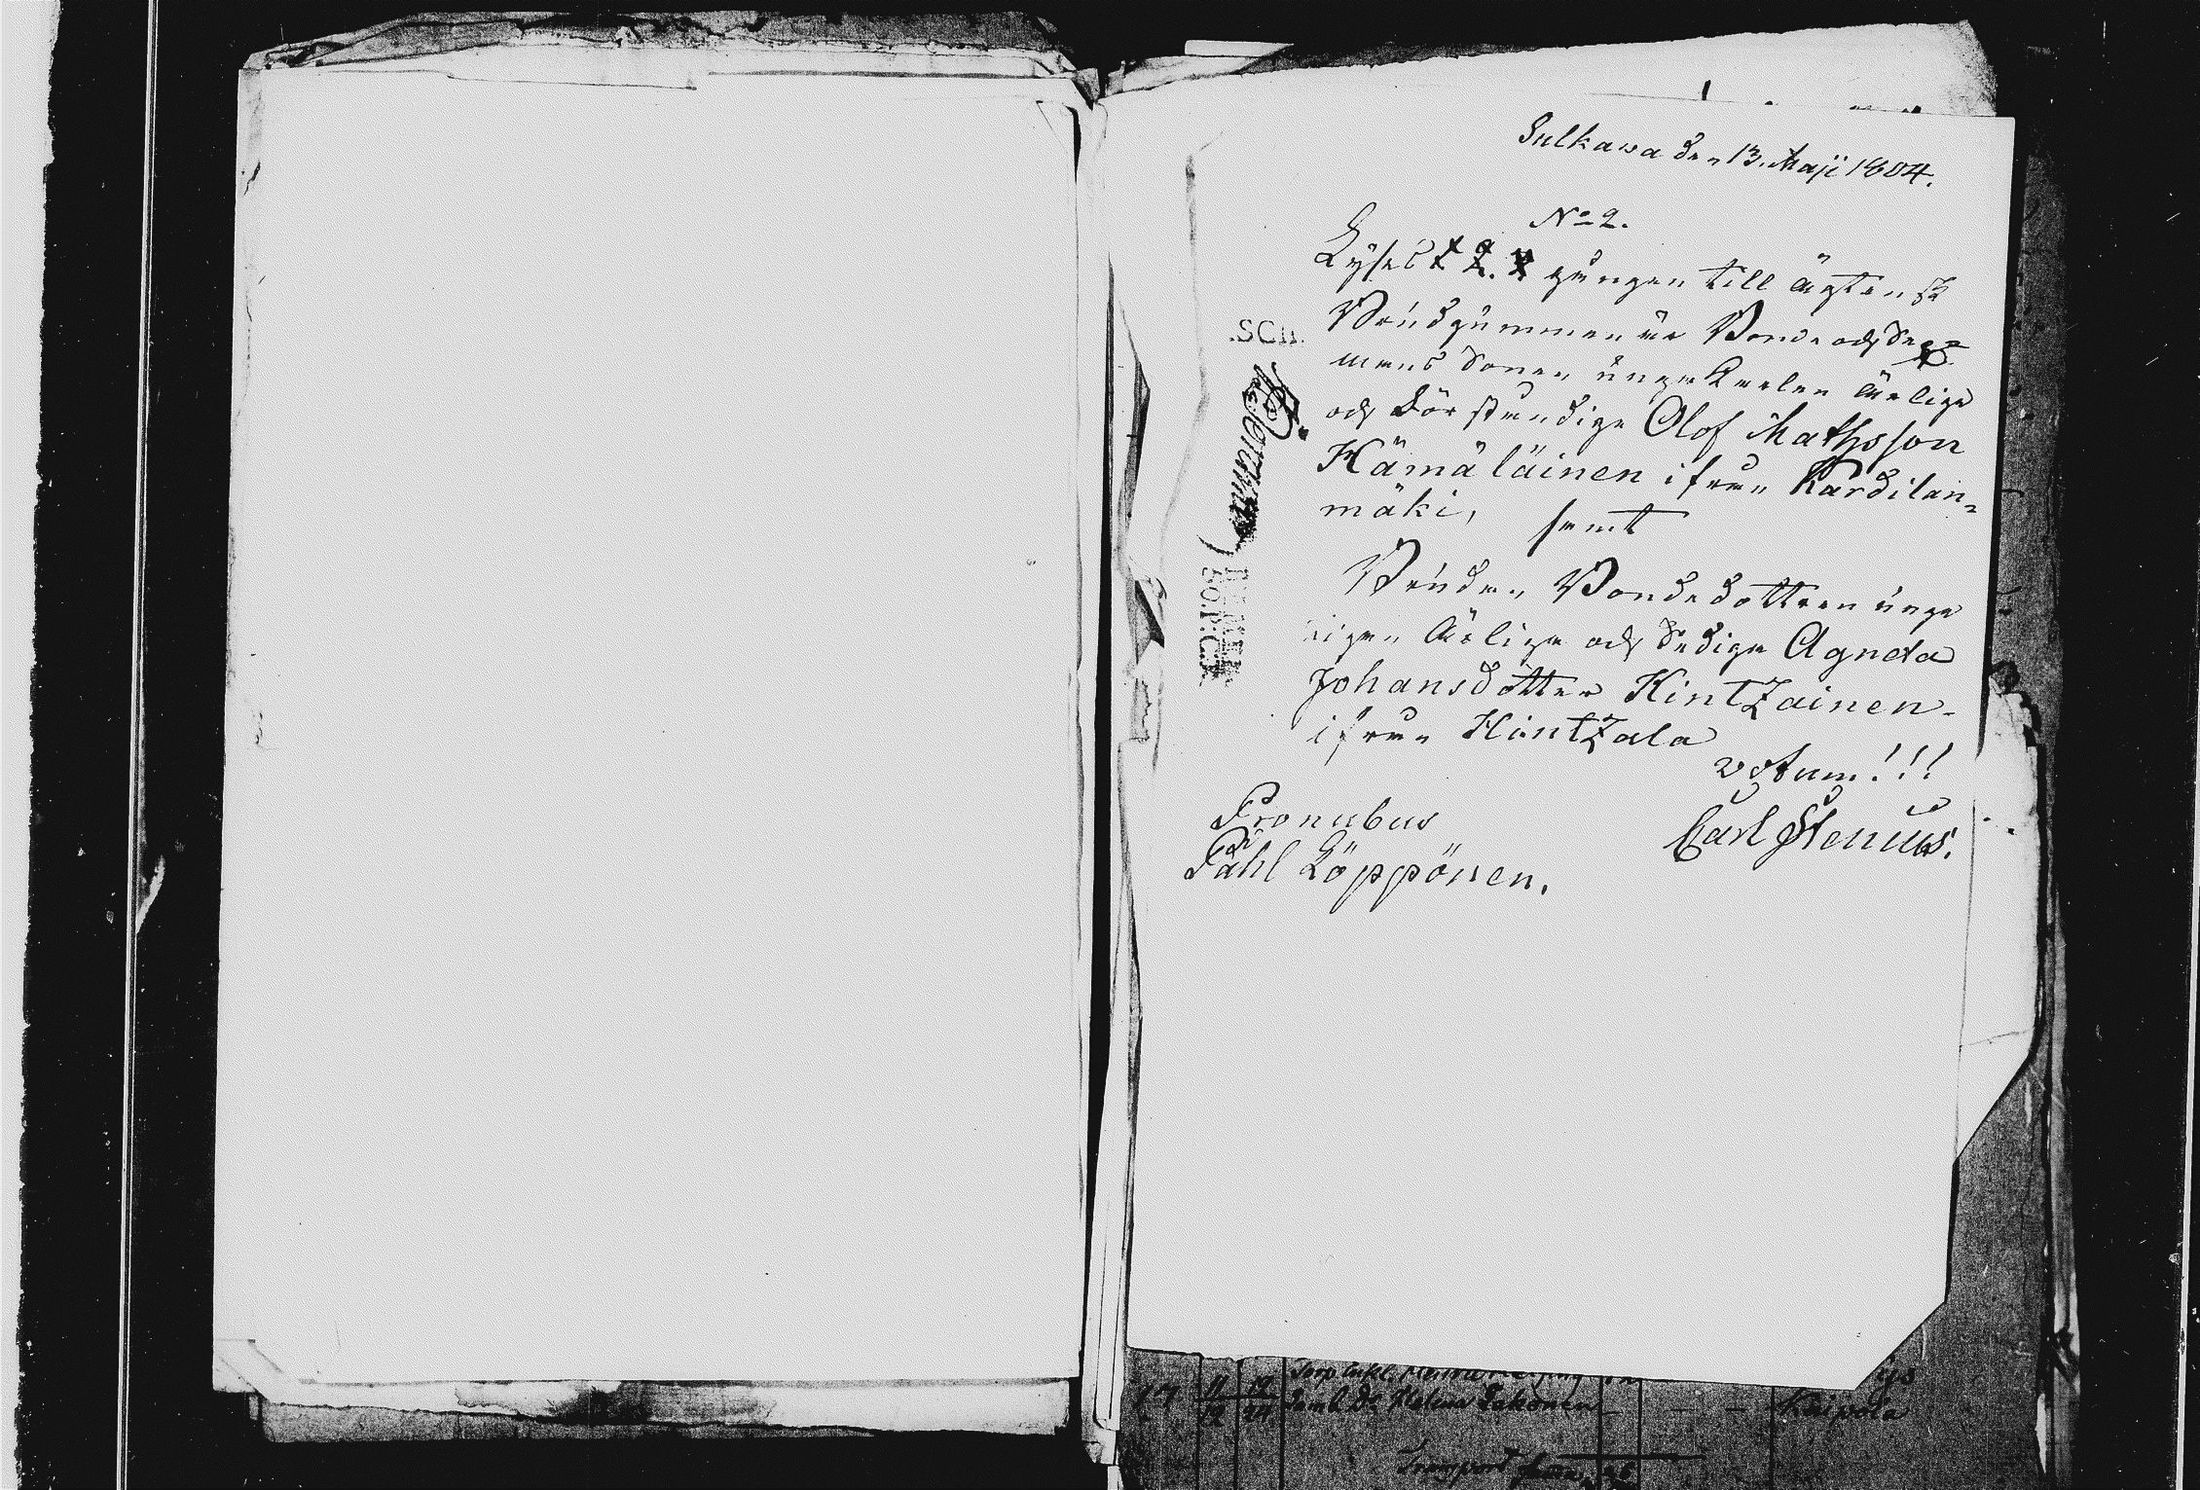 Sulkawa den 13. Maji 1804.
No 2.
Lyses 2. gången till ägtensk
Brudgummen är Bonde och
mans Sonen unge Karlen ärlige
och Förståndige Olof Mathsson
Hämäläinen ifrån Kardilan=
mäki, samt
Bruden Bondedottren unge
Pigan Ärlige och Sediga Agneta
Johansdotter Hintzainen
ifrån Hintzala
votum!!!
Pronubus
Carl Stenius.
Påhl Löppönen.
.SCH.
Dr Helena Kaipola
Transport